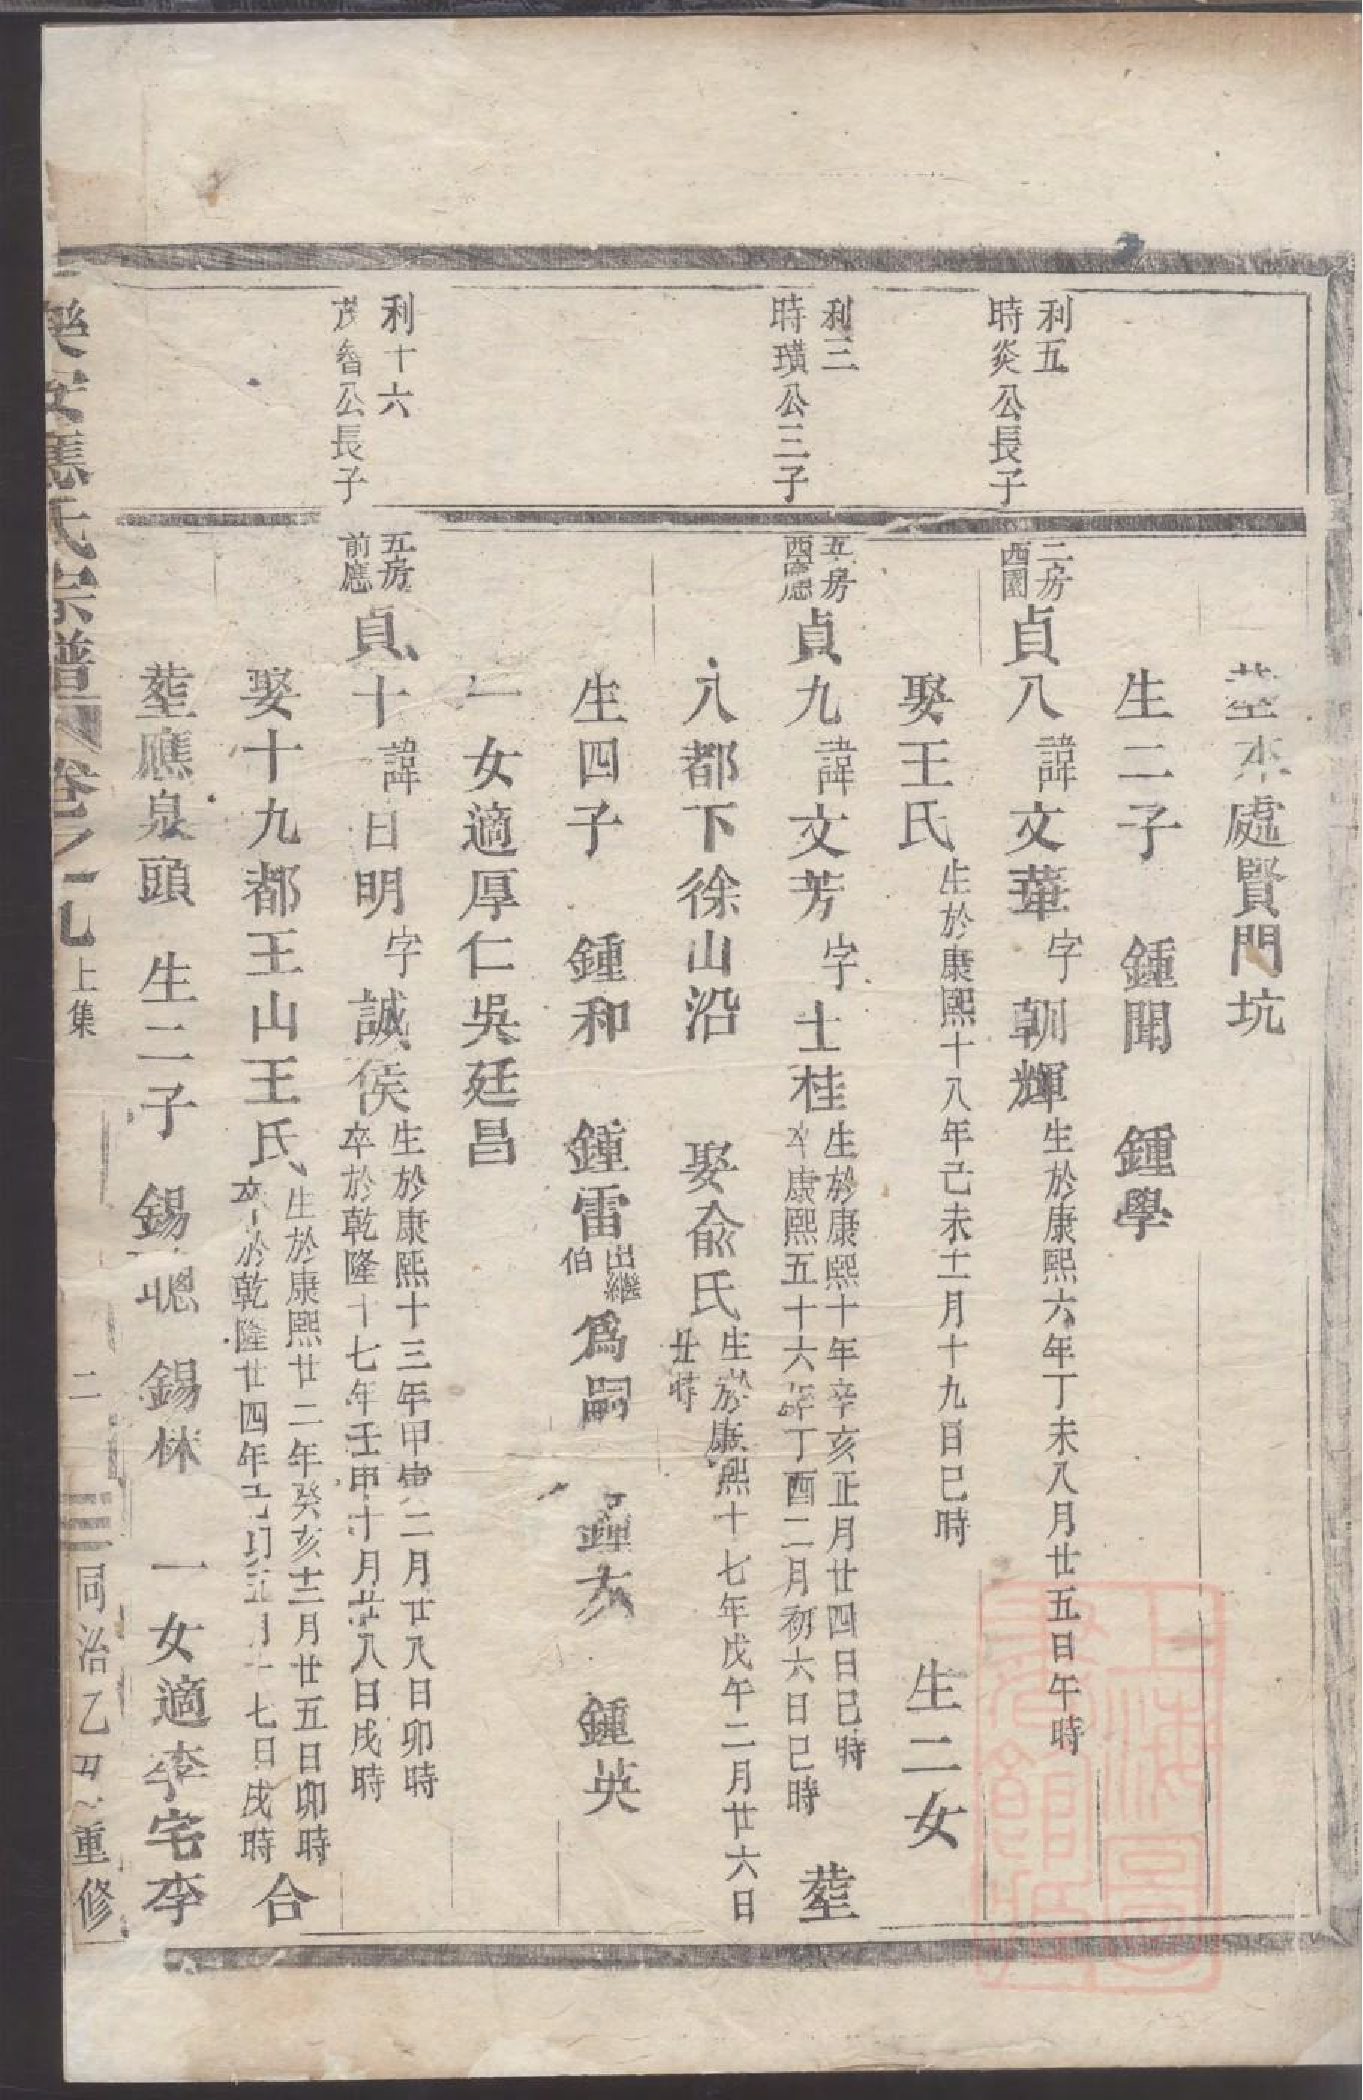 塟本處賢門坑
生二子 鍾聞 鍾學
利五
時炎公長子
二房
西園
貞八諱文華字朝輝
生於康熙六年丁未八月廿五日午時
娶王氏
生於康熙十八年己未十一月十九日巳時
生二女
利三
時璜公三子
五房
西應
貞九諱文芳字士桂
生於康熙十年辛亥正月廿四日巳時
卒康熙五十六年丁酉二月初六日巳時
塟
八都下徐山沿 娶俞氏
生於康熙十七年戊午二月廿六日
丑時
生四子 鍾和 鍾雷
出繼
伯
爲嗣 鍾友 鍾英
一女適厚仁吳廷昌
利十六
茂智公長子
五房
前應
貞十諱日明字誠侯
生於康熙十三年甲寅二月廿八日卯時
卒於乾隆十七年壬申十月廿八日戌時
娶十九都王山王氏
生於康熙廿二年癸亥十二月廿五日卯時
卒於乾隆廿四年己卯五月十七日戌時
合
塟應泉頭 生二子 錫聰 錫林 一女適李宅李
樂安應氏宗譜 卷之九 上集 二 同治乙丑重修
上海圖
書館藏